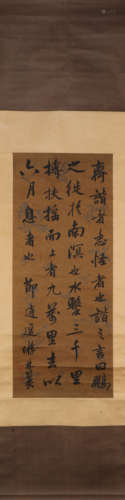 齊諧者志怪者也諧之言曰鵬
之徙於南溟也水擊三千里
摶扶搖而上者九萬里去以
六月息者也 節逍遥遊